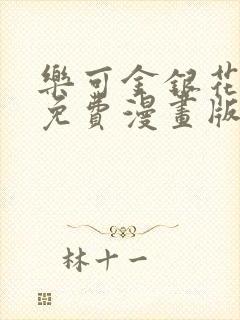 樂可金銀花
免費漫畫版
林十一